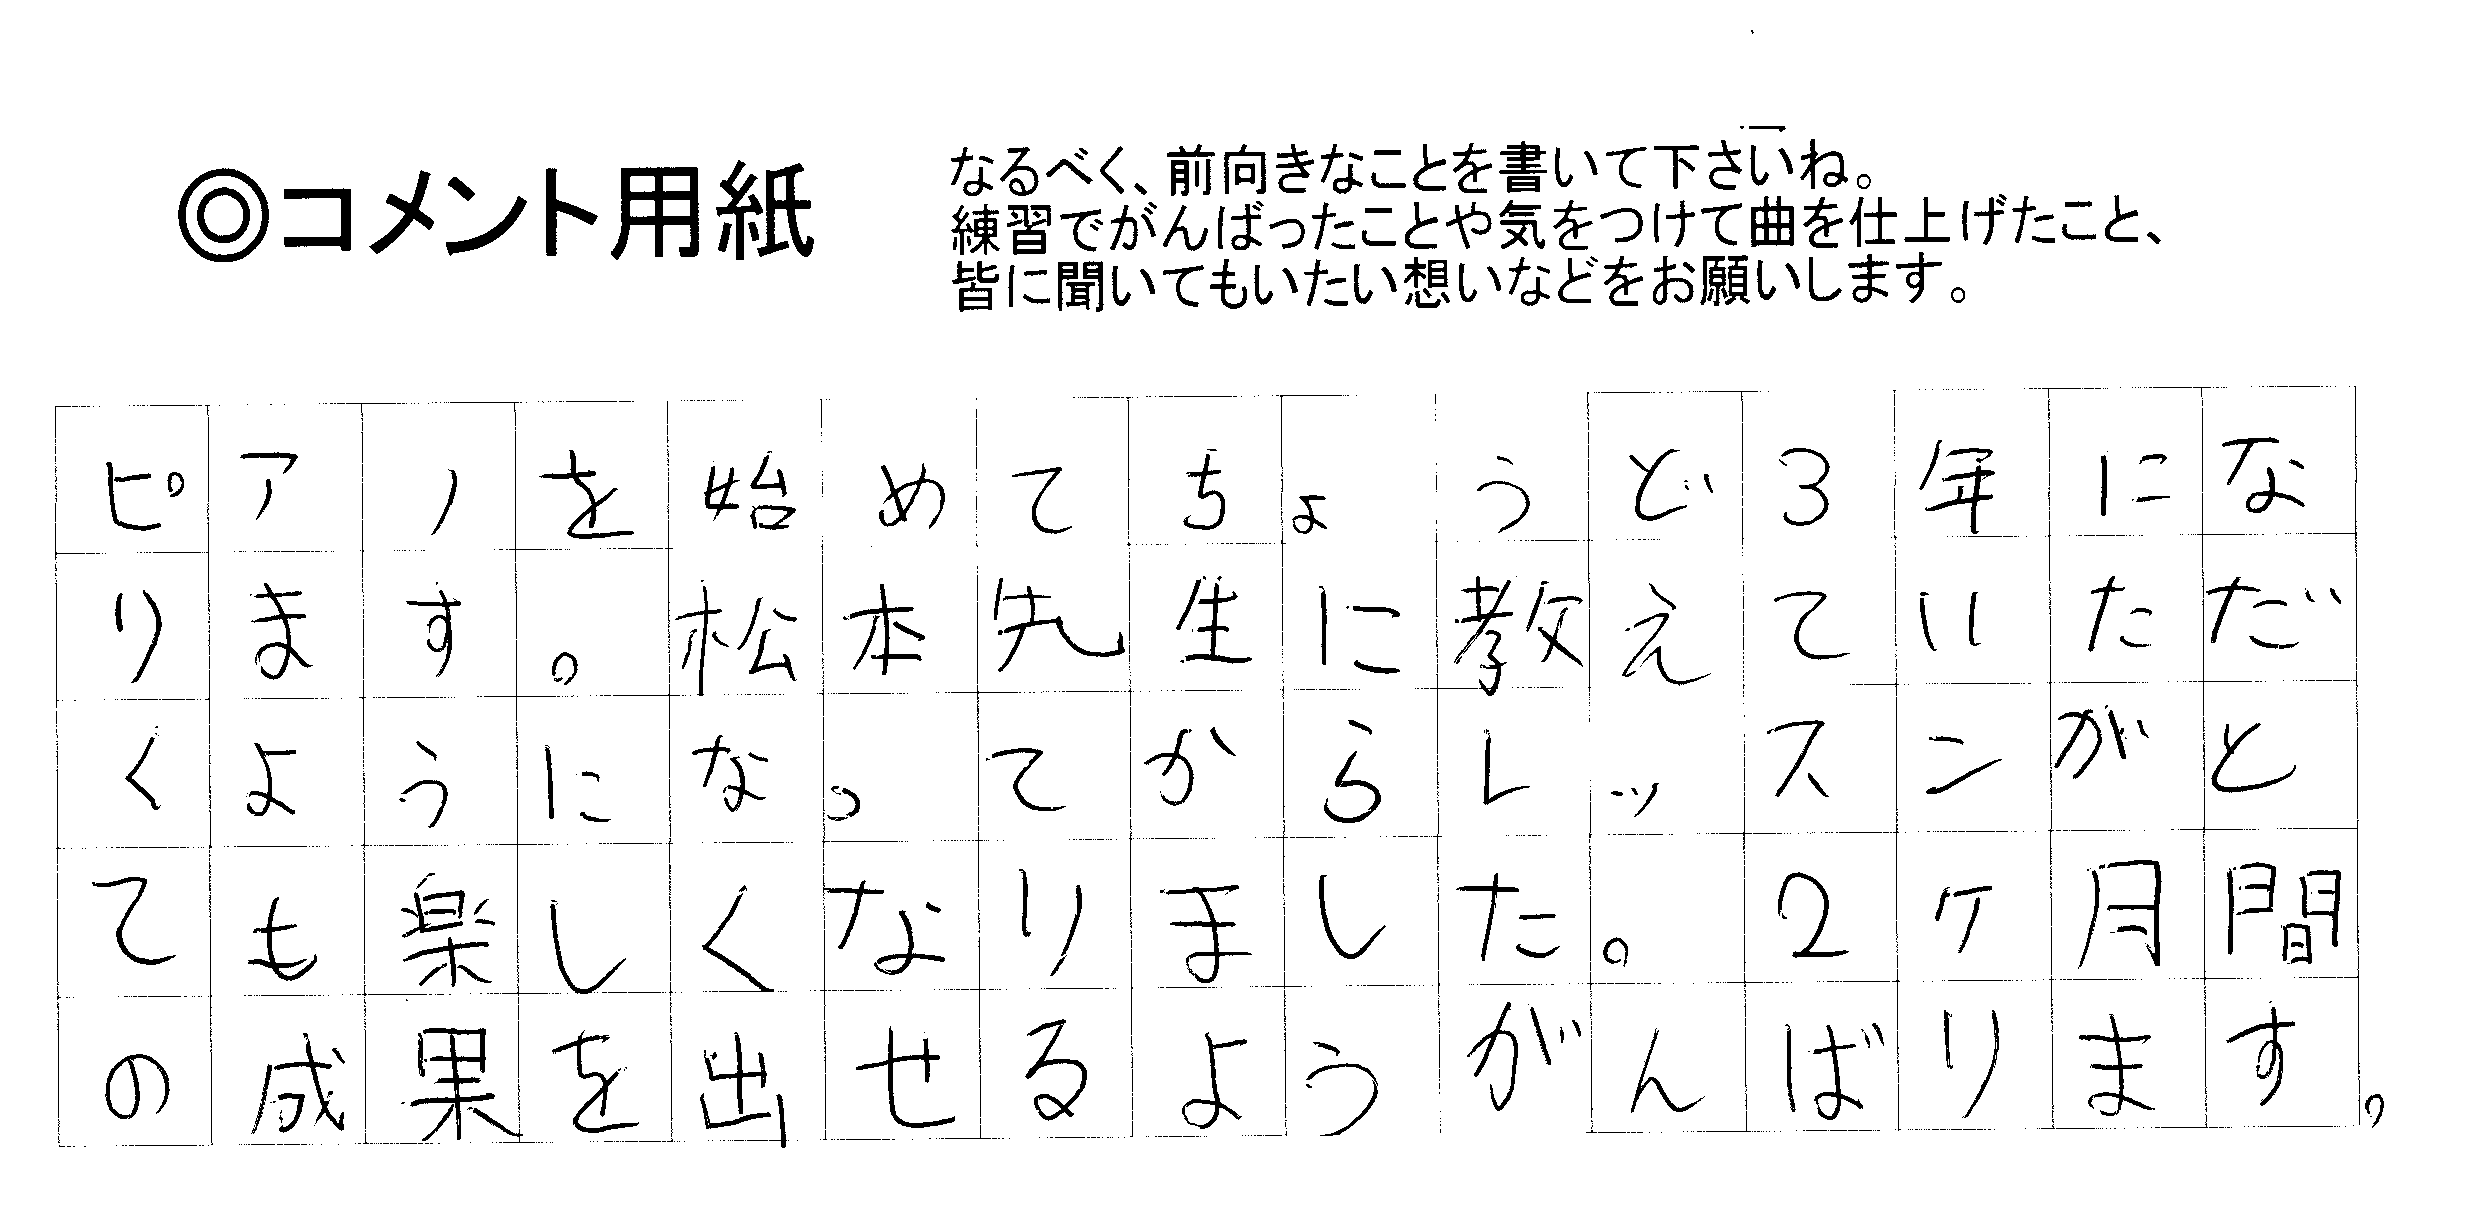 ◎コメント用紙
なるべく、前向きなことを書いて下さいね。
練習でがんばったことや気をつけて曲を仕上げたこと、
皆に聞いてもいたい想いなどをお願いします。
ピアノを始めてちょうど3年にな
ります。松本先生に教えていただ
くようになってからレッスンがと
ても楽しくなりました。2ケ月間
の成果を出せるようがんばります。